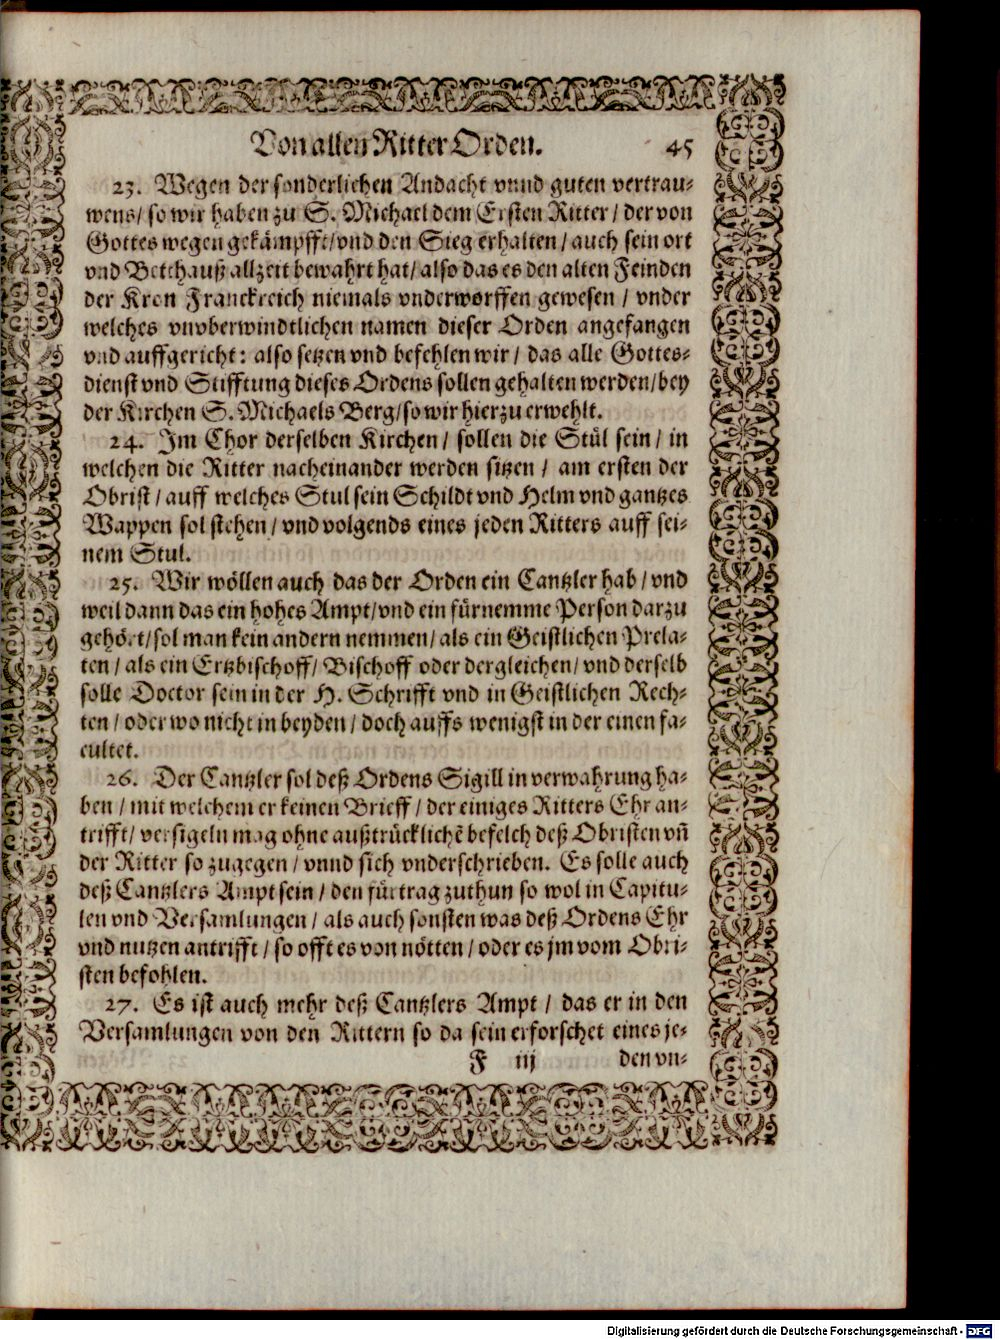 Von allen Ritter Orden. 45
23. Wegen der sonderlichen Andacht vnnd guten vertrau-
wens/ so wir haben zu S. Michael dem Ersten Ritter / der von
Gottes wegen gekämpfft/vnd den Sieg erhalten / auch sein ort
vnd Betthauß allzeit bewahrt hat/ also das es den alten Feinden
der Kron Franckreich niemals vnderworffen gewesen / vnder
welches vnvberwindtlichen namen dieser Orden angefangen
vnd auffgericht: also setzen vnd befehlen wir / das alle Gottes-
dienst vnd Stifftung dieses Ordens sollen gehalten werden/bey
der Kirchen S. Michaels Berg/so wir hierzu erwehlt.
24. Im Chor derselben Kirchen / sollen die Stül sein / in
welchen die Ritter nacheinander werden sitzen / am ersten der
Obrist / auff welches Stul sein Schildt vnd Helm vnd gantzes
Wappen sol stehen / vnd volgends eines jeden Ritters auff sei-
nem Stul.
25. Wir wöllen auch das der Orden ein Cantzler hab / vnd
weil dann das ein hohes Ampt/vnd ein fürnemme Person darzu
gehört/sol man kein andern nemmen/ als ein Geistlichen Prela-
ten / als ein Ertzbischoff/ Bischoff oder dergleichen/ vnd derselb
solle Doctor sein in der H. Schrifft vnd in Geistlichen Rech-
ten / oder wo nicht in beyden / doch auffs wenigst in der einen fa-
cultet.
26. Der Cantzler sol deß Ordens Sigill in verwahrung ha-
ben / mit welchem er keinen Brieff / der einiges Ritters Ehr an-
trifft/ versigeln mag ohne außtrücklichẽ befelch deß Obristen vñ
der Ritter so zugegen / vnnd sich vnderschrieben. Es solle auch
deß Cantzlers Ampt sein / den fürtrag zuthun so wol in Capitu-
len vnd Versamlungen / als auch sonsten was deß Ordens Ehr
vnd nutzen antrifft / so offt es von nötten / oder es jm vom Obri-
sten befohlen.
27. Es ist auch mehr deß Cantzlers Ampt / das er in den
Versamlungen von den Rittern so da sein erforschet eines je-
F iij den vn-
Digitalisierung gefördert durch die Deutsche Forschungsgemeinschaft - DFG